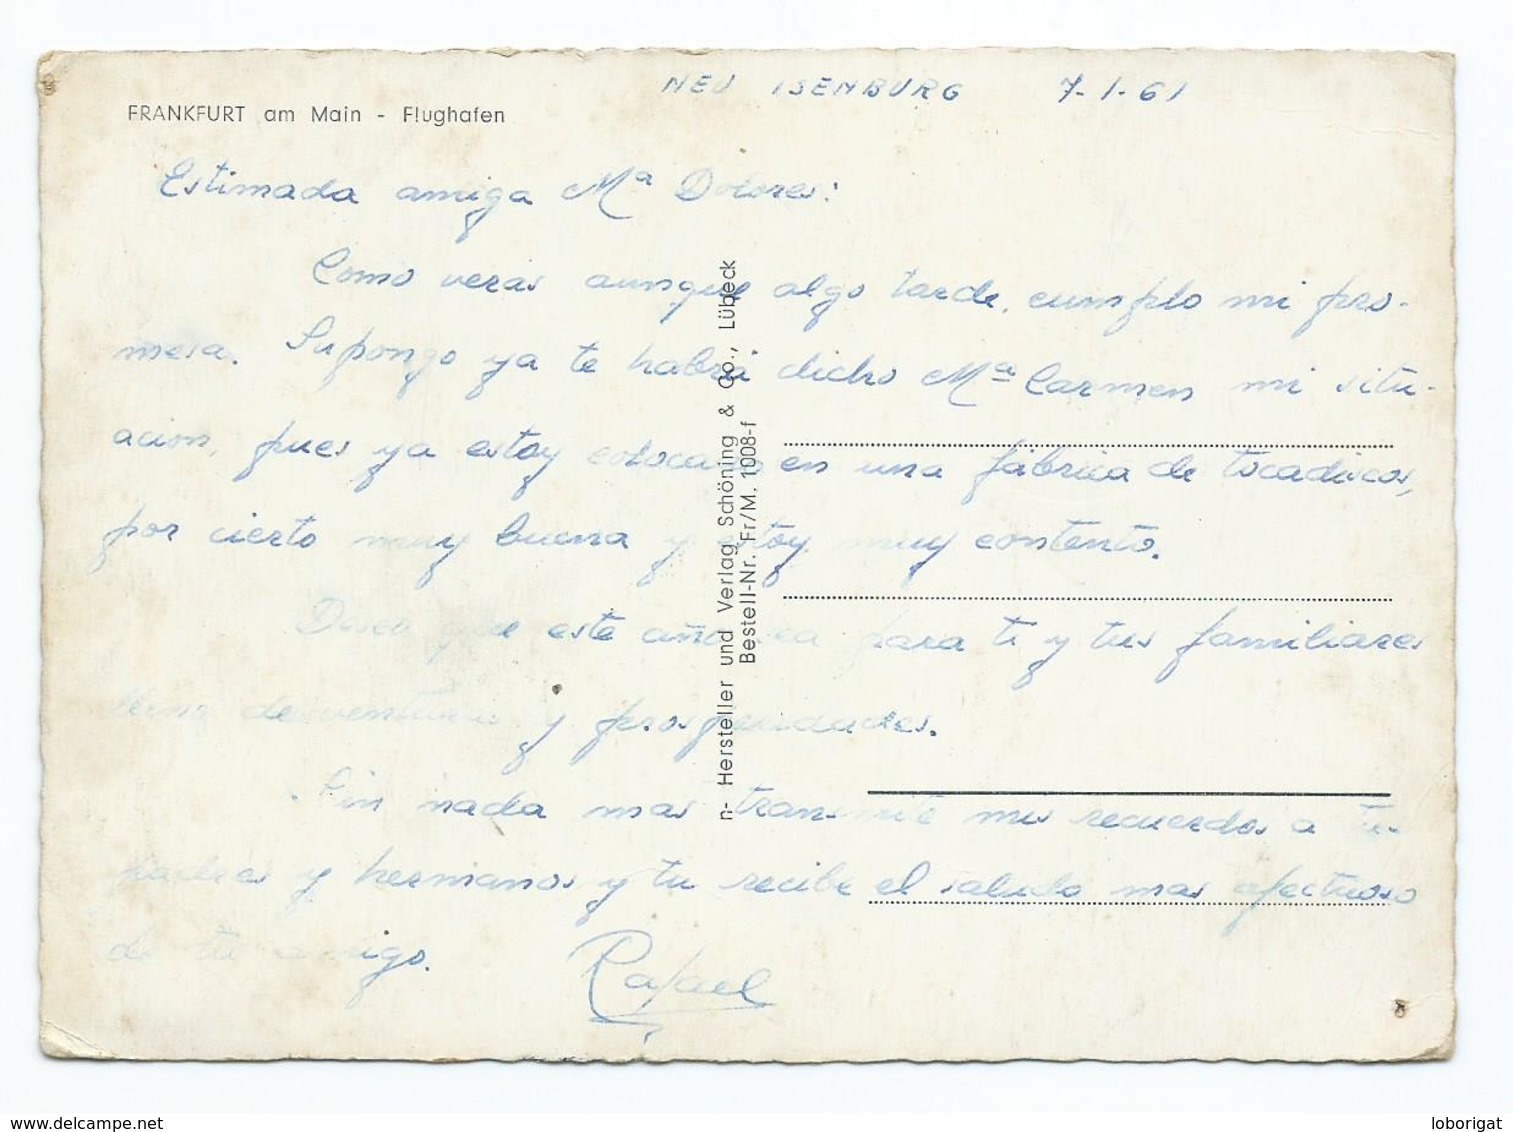 NEU ISENBURG 7-1-61
FRANKFURT am Main - Flughafen
Estimada amiga Mª Dolores:
Como verás aunque algo tarde, cumplo mi pro-
mesa. Supongo ya te habrá dicho Mª Carmen mi situ-
acion, pues ya estoy colocado en una fábrica de tocadiscos,
por cierto muy buena y estoy muy contento.
Deseo que este año sea para ti y tus familiares
lleno de venturas y prosperidades.
Sin nada mas transmite mis recuerdos a tus
padres y hermanos y tu recibe el saludo mas afectuoso
de tu amigo.
Rafael
n- Hersteller und Verlag Schöning & Co., Lübeck
Bestell-Nr. Fr/M. 1008-f
delcampe.net
loborigat